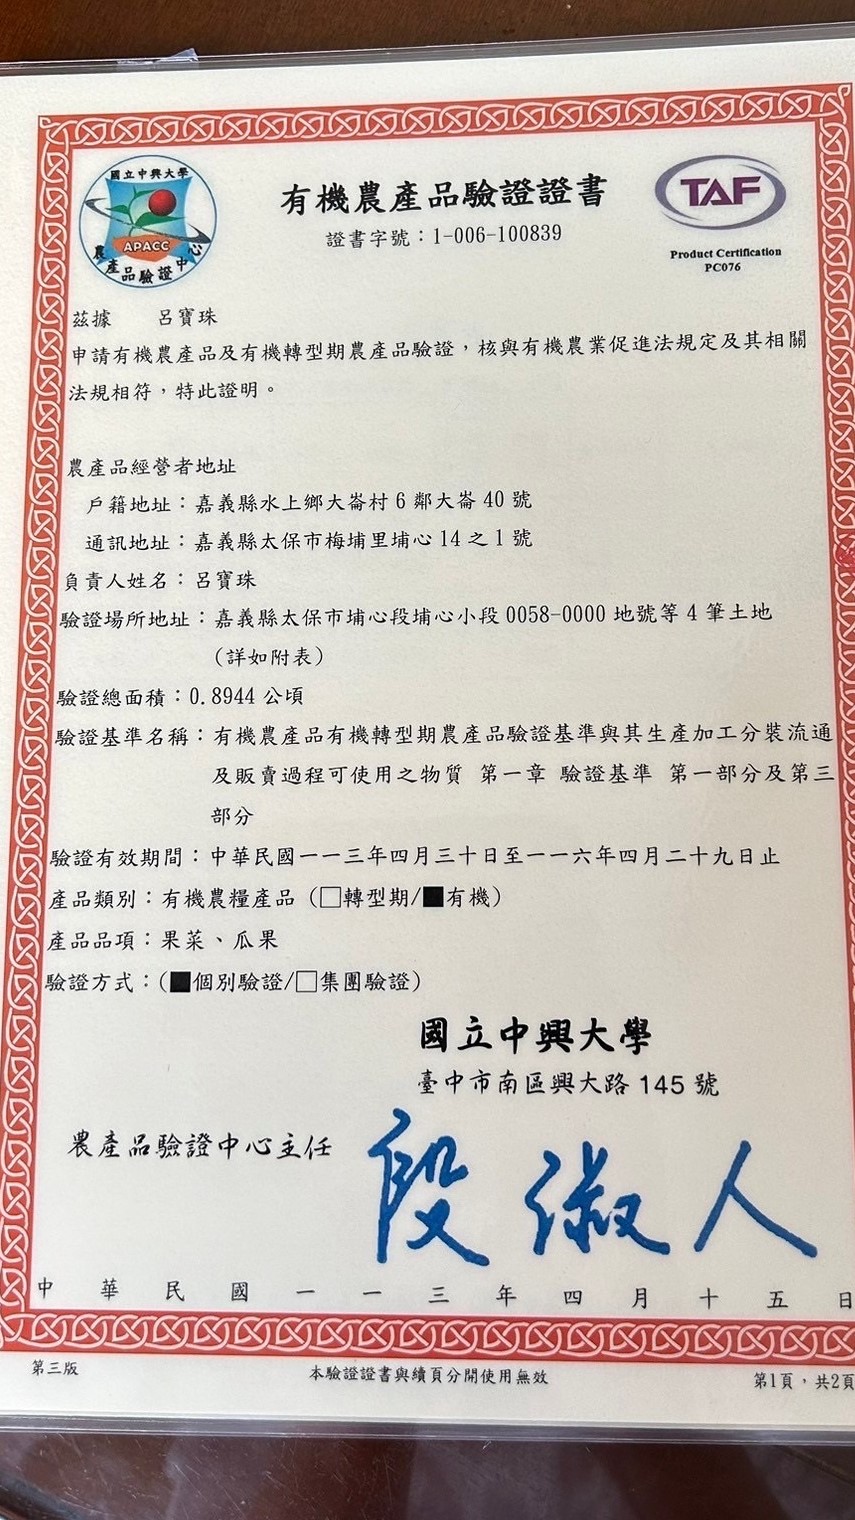 國立中興大學
APACC
農產品驗證中心
有機農產品驗證證書
證書字號：1-006-100839
TAF
Product Certification
PC076
茲據 呂寶珠
申請有機農產品及有機轉型期農產品驗證，核與有機農業促進法規定及其相關
法規相符，特此證明。
農產品經營者地址
戶籍地址：嘉義縣水上鄉大崙村 6 鄰大崙 40 號
通訊地址：嘉義縣太保市梅埔里埔心 14 之 1 號
負責人姓名：呂寶珠
驗證場所地址：嘉義縣太保市埔心段埔心小段 0058-0000 地號等 4 筆土地
（詳如附表）
驗證總面積：0.8944 公頃
驗證基準名稱：有機農產品有機轉型期農產品驗證基準與其生產加工分裝流通
及販賣過程可使用之物質 第一章 驗證基準 第一部分及第三
部分
驗證有效期間：中華民國一一三年四月三十日至一一六年四月二十九日止
產品類別：有機農糧產品（□轉型期/■有機）
產品品項：果菜、瓜果
驗證方式：（■個別驗證/□集團驗證）
國立中興大學
臺中市南區興大路 145 號
農產品驗證中心主任 段淑人
中華民國一一三年四月十五日
第三版 本驗證證書與續頁分開使用無效 第1頁，共2頁